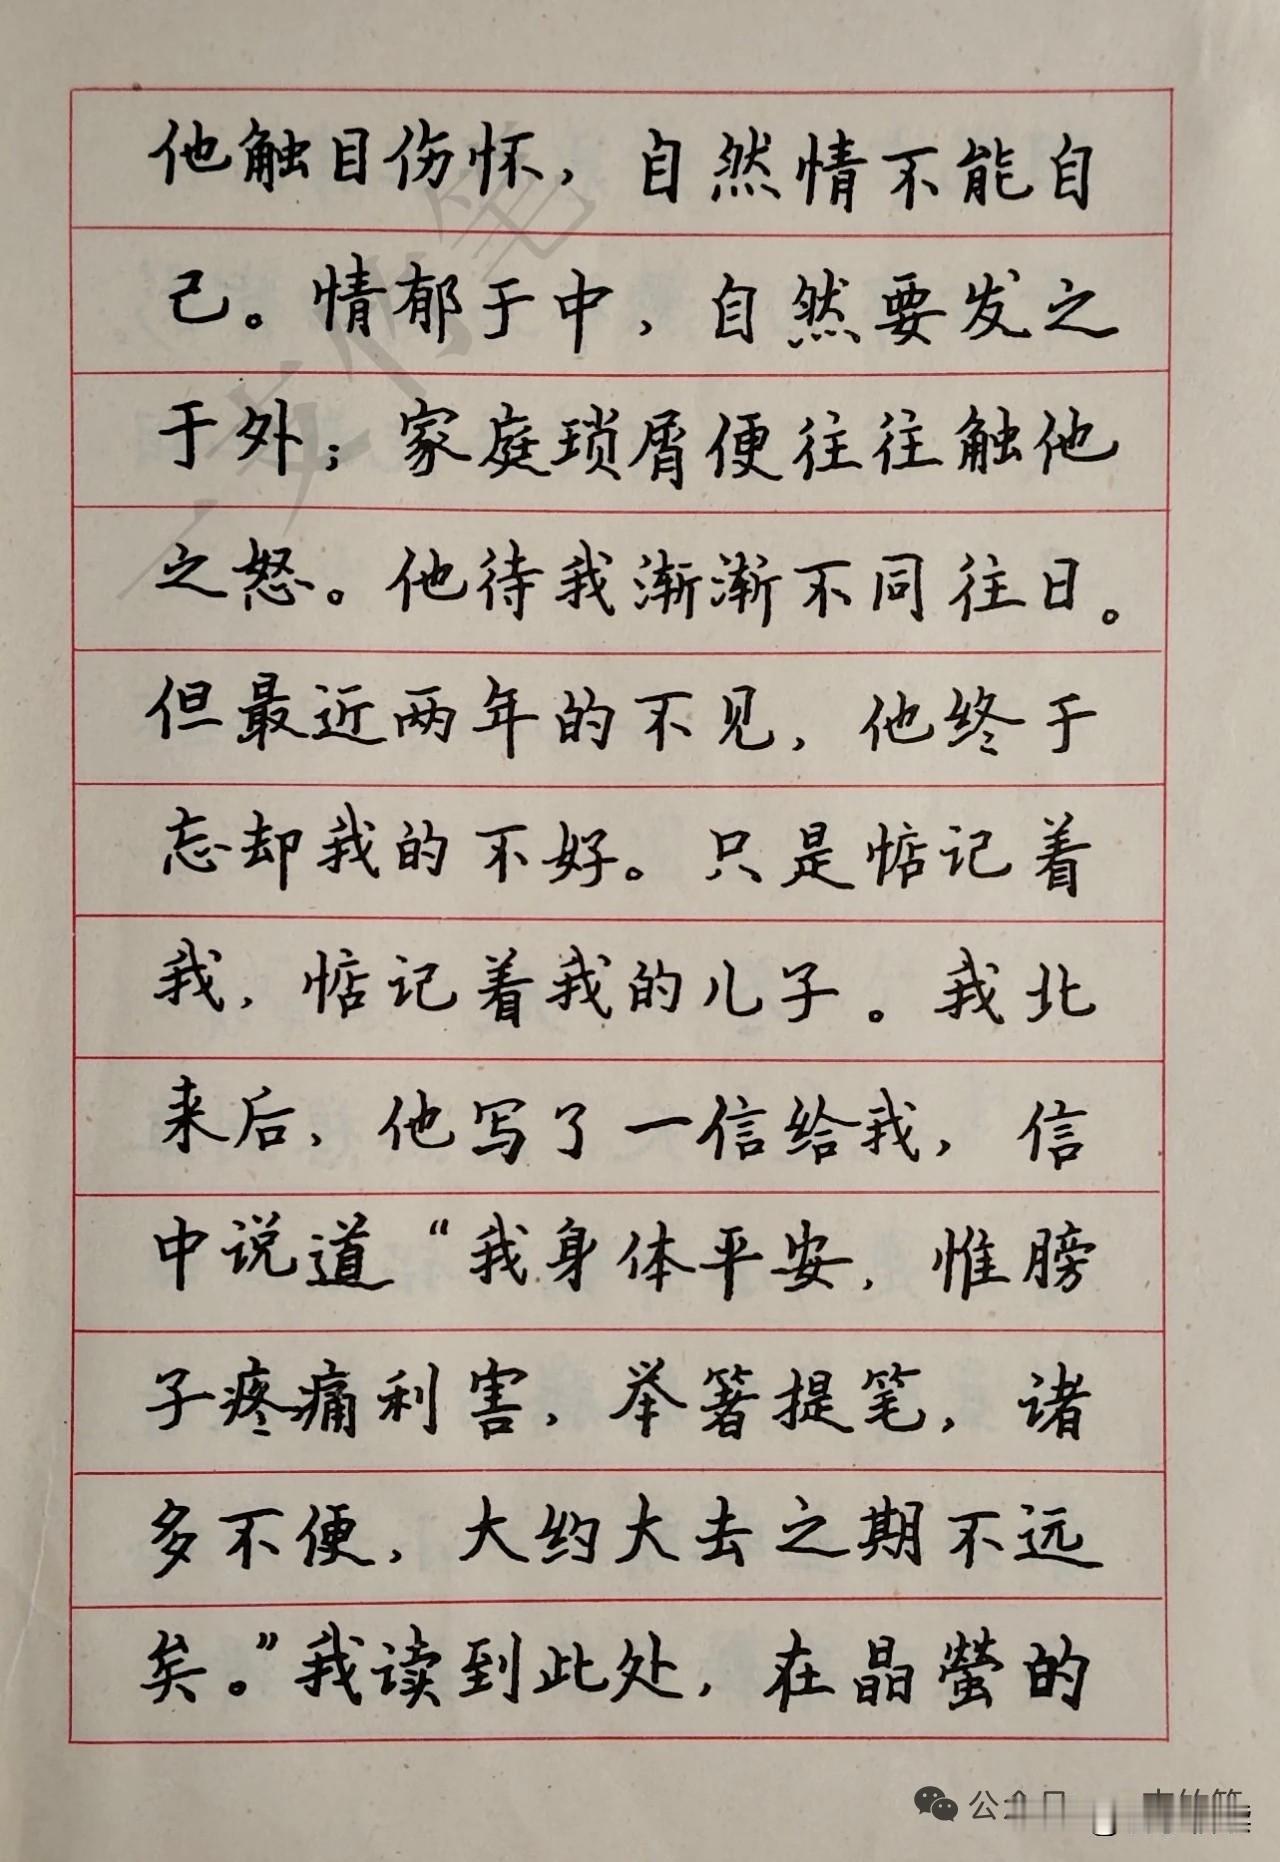 他触目伤怀，自然情不能自
己。情郁于中，自然要发之
于外；家庭琐屑便往往触他
之怒。他待我渐渐不同往日。
但最近两年的不见，他终于
忘却我的不好。只是惦记着
我，惦记着我的儿子。我北
来后，他写了一信给我，信
中说道“我身体平安，惟膀
子疼痛利害，举箸提笔，诸
多不便，大约大去之期不远
矣。”我读到此处，在晶莹的